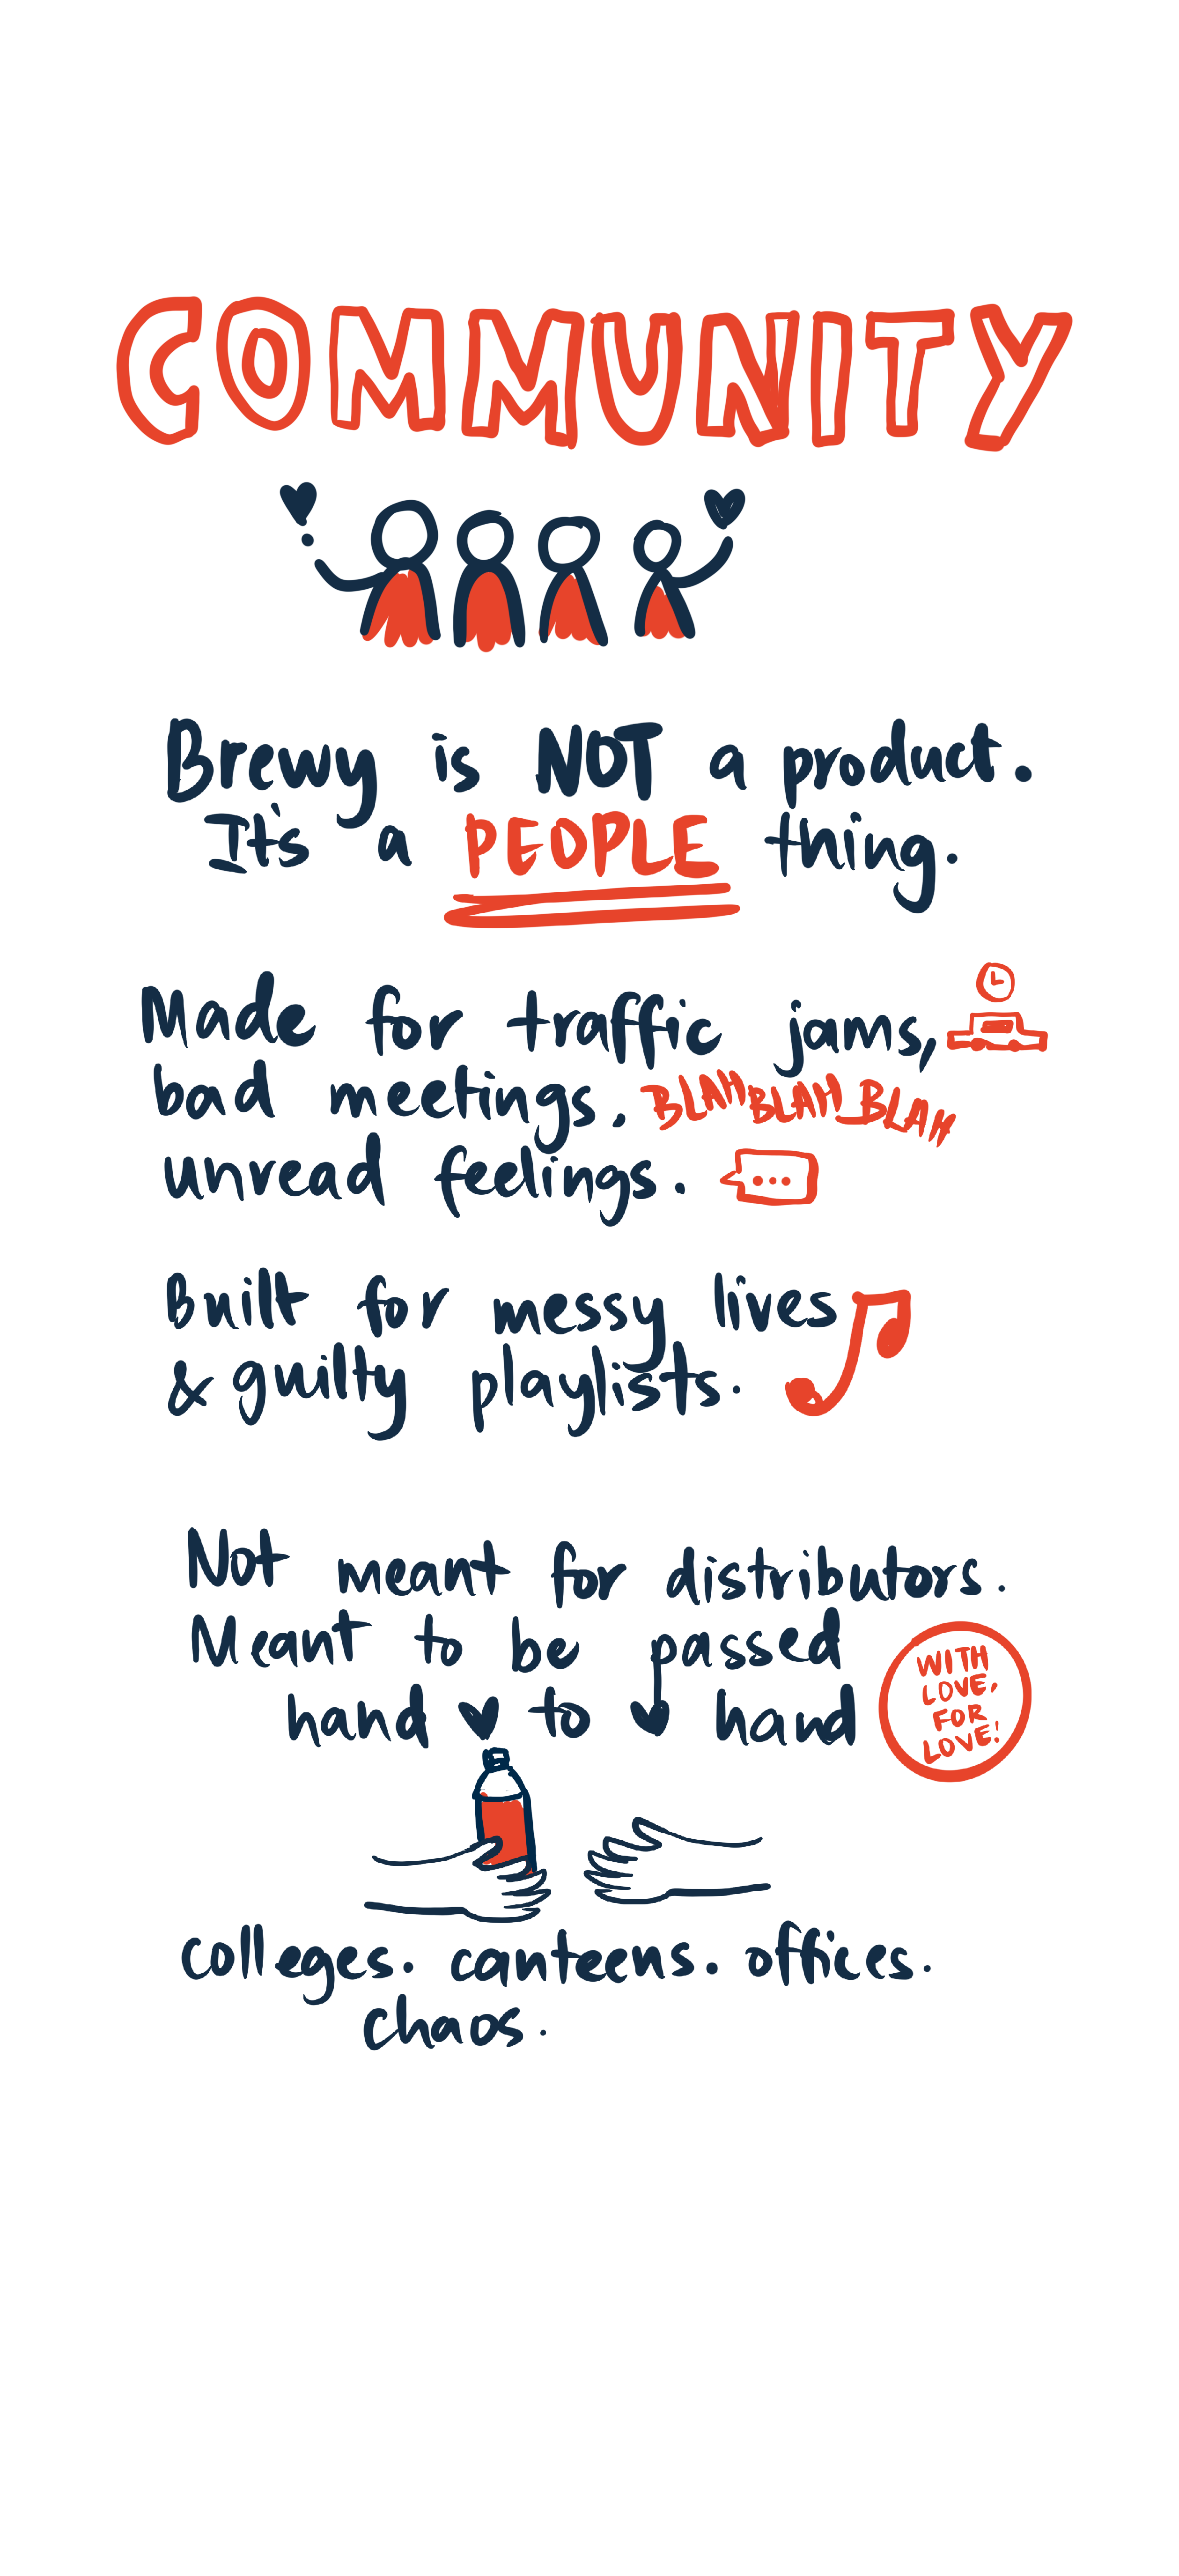 COMMUNITY
Brewy is NOT a product.
It's a PEOPLE thing.
Made for traffic jams,
bad meetings. BLAH BLAH BLAH
unread feelings.
Built for messy lives
& guilty playlists.
Not meant for distributors.
Meant to be passed
hand to hand
WITH
LOVE,
FOR
LOVE!
colleges. canteens. offices.
chaos.